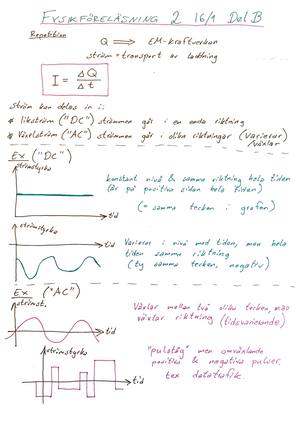 FYSIKFÖRELÄSNING 2 16/1 Del B
Repetition
Q ⟹ EM-kraftverkan
ström = transport av laddning
I = ΔQ / Δt
ström kan delas in i:
* likström ("DC") strömmen går i en enda riktning
* Växelström ("AC") strömmen går i olika riktningar (varierar/växlar)
Ex ("DC")
strömstyrka
konstant nivå & samma riktning hela tiden
(är på positiva sidan hela tiden)
(= samma tecken i grafen)
tid
strömstyrka
tid
Varierar i nivå med tiden, men hela
tiden samma riktning
(ty samma tecken, negativ)
Ex ("AC")
strömst.
Växlar mellan två olika tecken, mao
växlar riktning (tidsvarierande)
tid
strömstyrka
"pulståg" men omväxlande
positiva & negativa pulser,
tex datatrafik.
tid